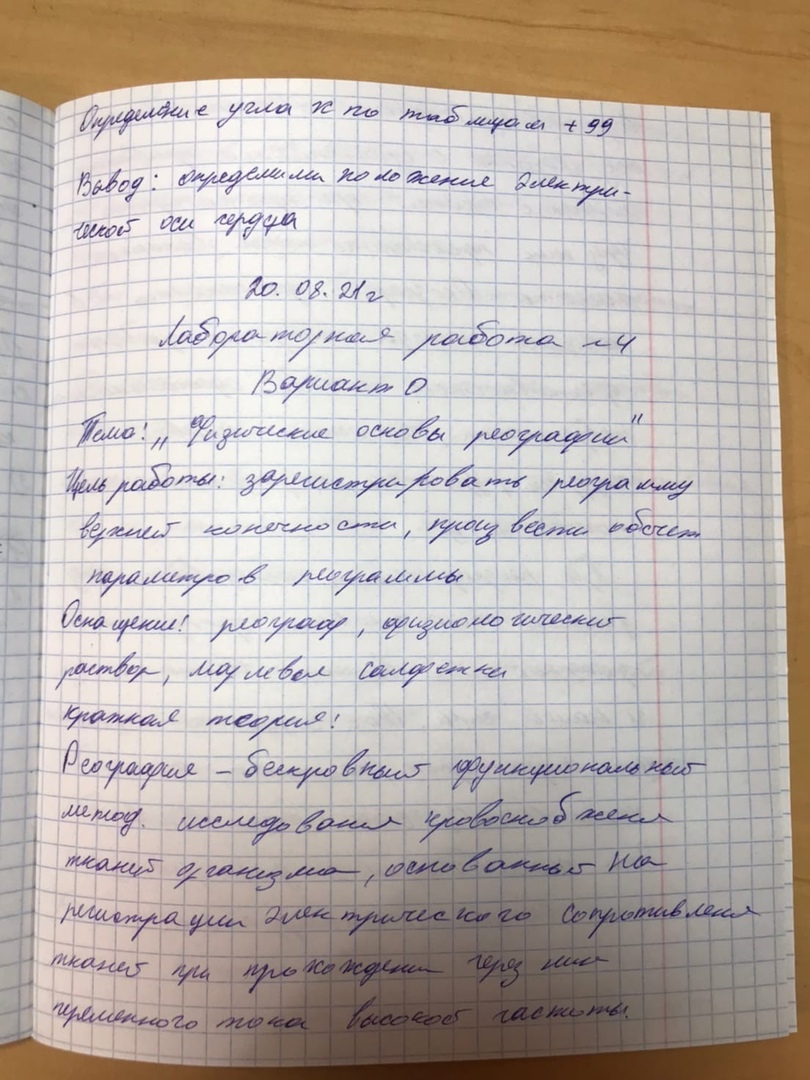 Определение угла х по таблицам +99
Вывод: определили положение электри-
ческой оси сердца
20.08.21г
Лабораторная работа ~4
Вариант 0
Тема: „Физические основы реографии"
Цель работы: зарегистрировать реограмму
верхней конечности, произвести обсчет
параметров реограммы
Оснащение: реограф, физиологический
раствор, марлевая салфетка
краткая теория:
Реография – бескровный функциональный
метод. исследования кровоснобжения
тканей организма, основанный на
регистрации электрического сопротивления
тканей при прохождении через них
переменного тока высокой частоты.